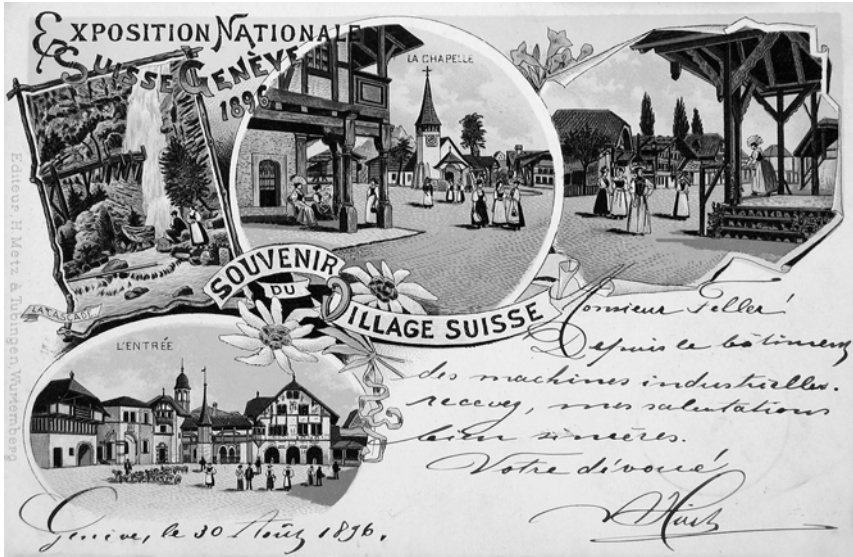 EXPOSITION NATIONALE
SUISSE GENÈVE
1896
LA CHAPELLE
Editeur, H. Metz à Tubingen, Wurtemberg
LA CASCADE
SOUVENIR
DU
VILLAGE SUISSE
L'ENTRÉE
Monsieur
Depuis le bâtiment
des machines industrielles.
recevez, mes salutations
bien sincères.
Votre dévoué
Genève, le 30 Août 1896.